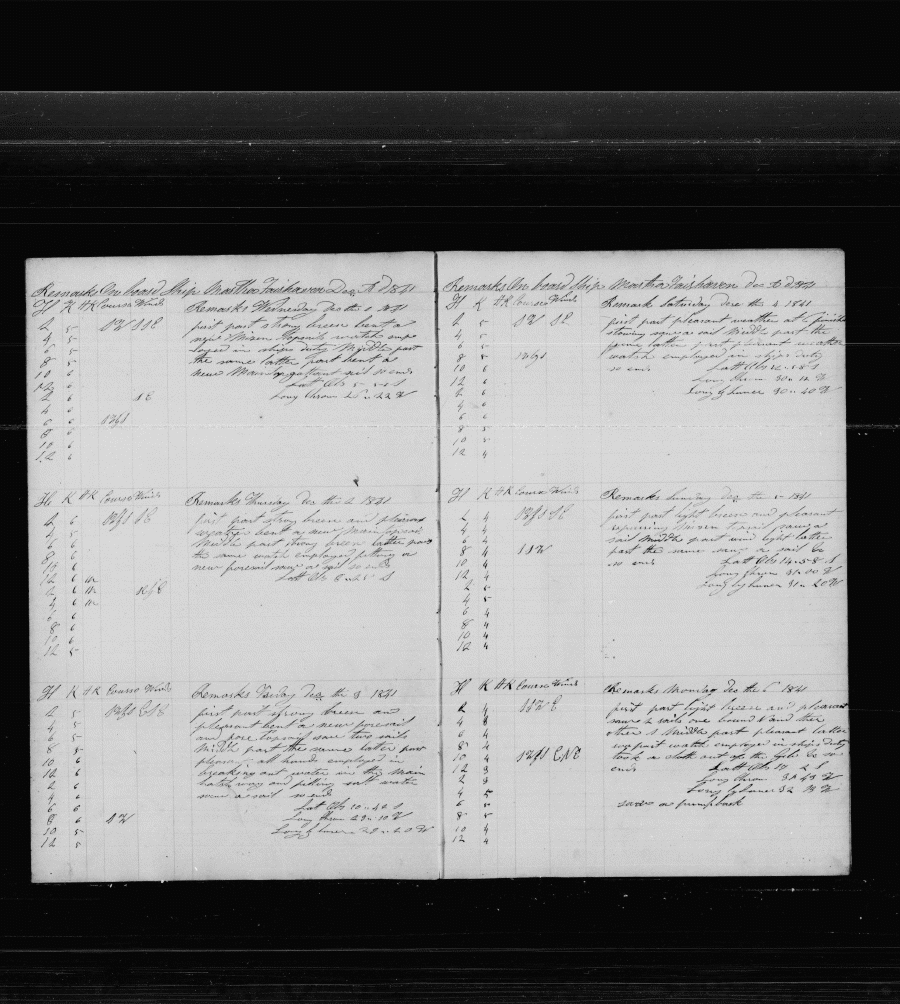 Remarks On board Ship Martha Fairhaven Dec A D 1841
H K HK Course Winds Remarks Wednesday Dec the 1 1841
2 5 SW SSE first part strong breese bent a
4 5 new Misen topsail watch emp
6 5 loyed in ships duty Middle part
8 5 the same latter part bent a
10 6 new Main topgallant sail so ends
12 6 Latt Obs
2 6 SE Long Chron
4 6
6 6
8 6
10 6
12 6
H K HK Course Winds Remarks Thursday Dec the 2 1841
2 6 SE first part strong breese and pleasant
4 5 weather bent a new Main topsail
6 6 Middle part strong breese latter part
8 6 the same watch employed putting a
10 6 new foresail saw a sail so ends
12 6 Latt Obs S
2 6
4 6
6 6
8 6
10 6
12 5
H K HK Course Winds Remarks Friday Dec the 3 1841
2 5 first part strong breese and
4 5 pleasant bent a new foresail
6 5 and fore topsail saw two sails
8 5 Middle part the same latter part
10 6 pleasant all hands employed in
12 6 breaking out water in the Main
2 6 hatchway and putting salt water
4 6 saw a sail so ends
6 6 Latt Obs 10 - 40 S
8 6 SW Long Chron 29 - 10 W
10 5 Long by Luner 29 - 20 W
12 5
Remarks On board Ship Martha Fairhaven Dec A D 1841
H K HK Course Winds Remarks Saturday Dec the 4 1841
2 5 SW SE first part pleasant weather at 4 finished
4 5 stowing saw a sail Middle part the
6 5 same latter part pleasant weather
8 5 watch employed in ships duty
10 6 so ends Latt Obs 12 - 58 S
12 6 Long Chron 30 - 12 W
2 6 Long by Luner 30 - 40 W
4 6
6 6
8 5
10 5
12 4
H K HK Course Winds Remarks Sunday Dec the 5 1841
2 4 SE first part light breese and pleasant
4 4 repairing Misen topsail saw a
6 4 sail Middle part wind light latter
8 4 SSW part the same saw a sail
10 4 so ends Latt Obs 14 - 58 S
12 4 Long Chron 31 - 00 W
2 5 Long by Luner 31 - 20 W
4 5
6 4
8 4
10 4
12 4
H K HK Course Winds Remarks Monday Dec the 6 1841
2 4 SSW E first part light breese and pleasant
4 4 saw 2 sails one bound and the
6 4 other S Middle part pleasant latter
8 4 part watch employed in ships duty
10 4 ENE took a off the so
12 3 ends Latt Obs 17 - 2 S
2 3 Long Chron 32 W
4 5 Long by Luner 32 W
6 5 saw a humpback
8 5
10 4
12 4